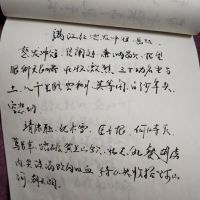 满江红 怒发冲冠 岳飞
怒发冲冠,凭阑处,潇潇雨歇。抬望
眼仰天长啸,壮怀激烈。三十功名尘与
土,八千里路云和月。莫等闲,白了少年
空悲切
靖康耻,犹未雪。臣子恨,何时灭
驾长车,踏破贺兰山缺,壮志饥餐胡虏
肉 笑谈渴饮匈奴血 待从头收拾旧山
河 朝天阙